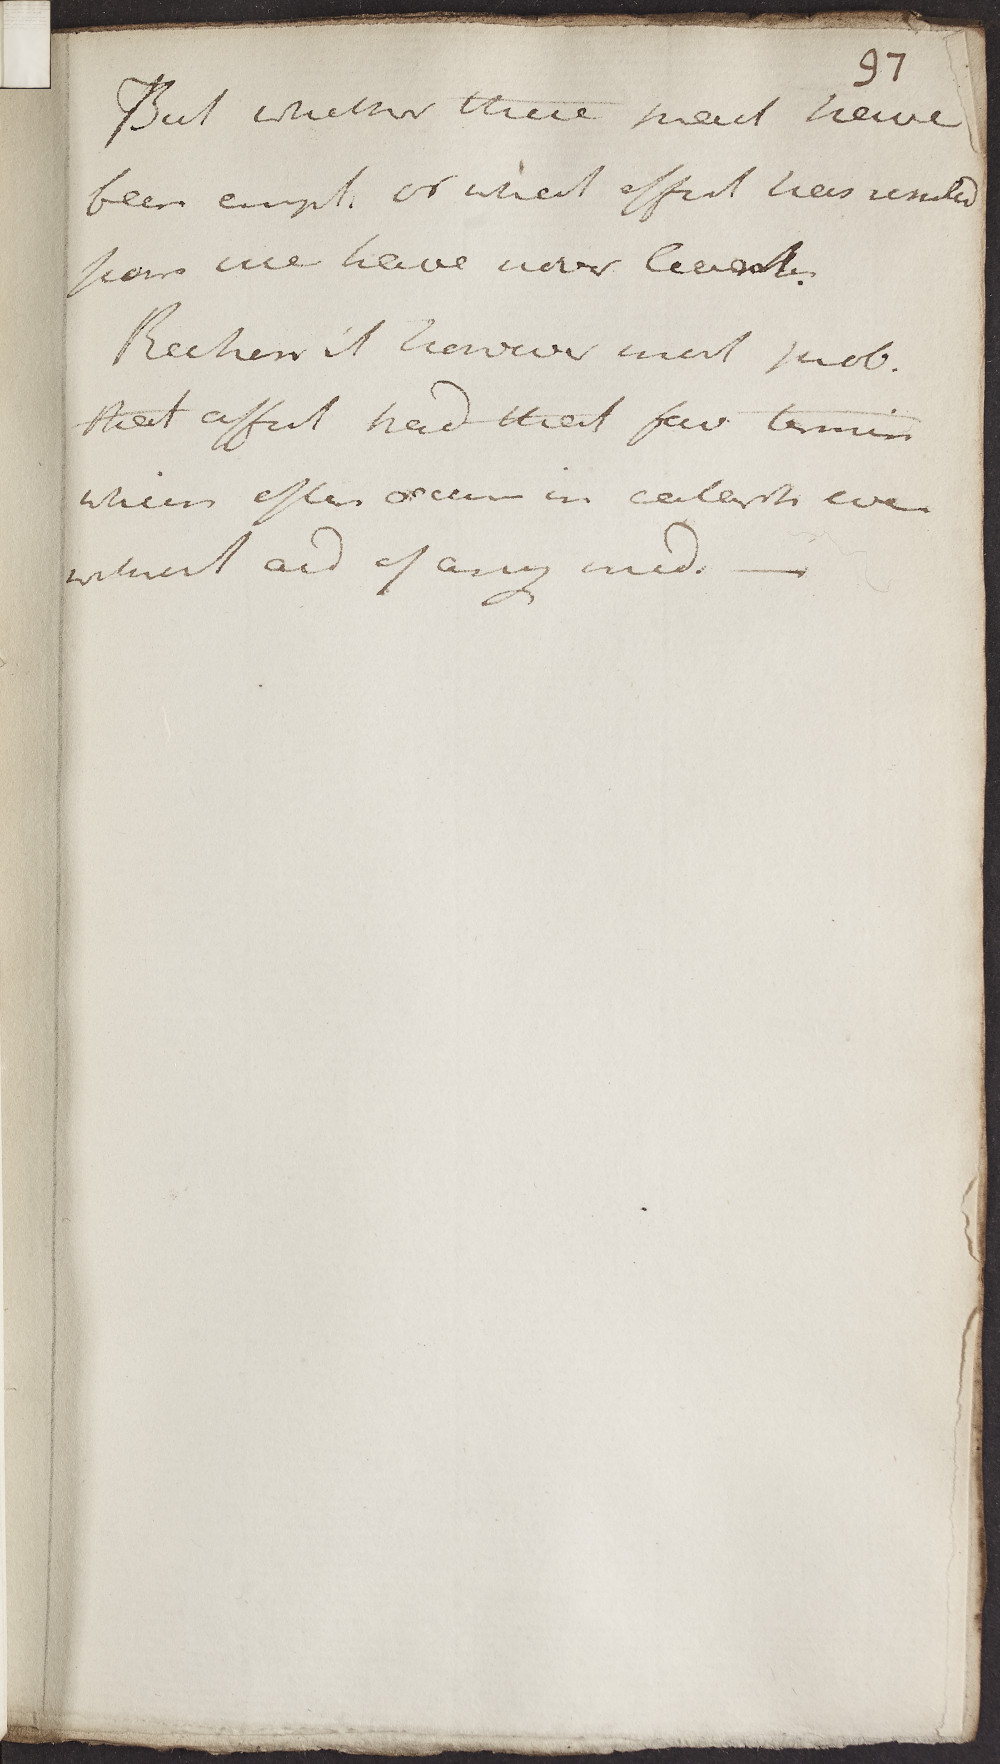 97
But whether these pract have
been empl. or what effect has resulted
from use have never learnt.
Reckon it however most prob.
that affect had that fav. termin
which often occurs in catarrh even
without aid of any med. —